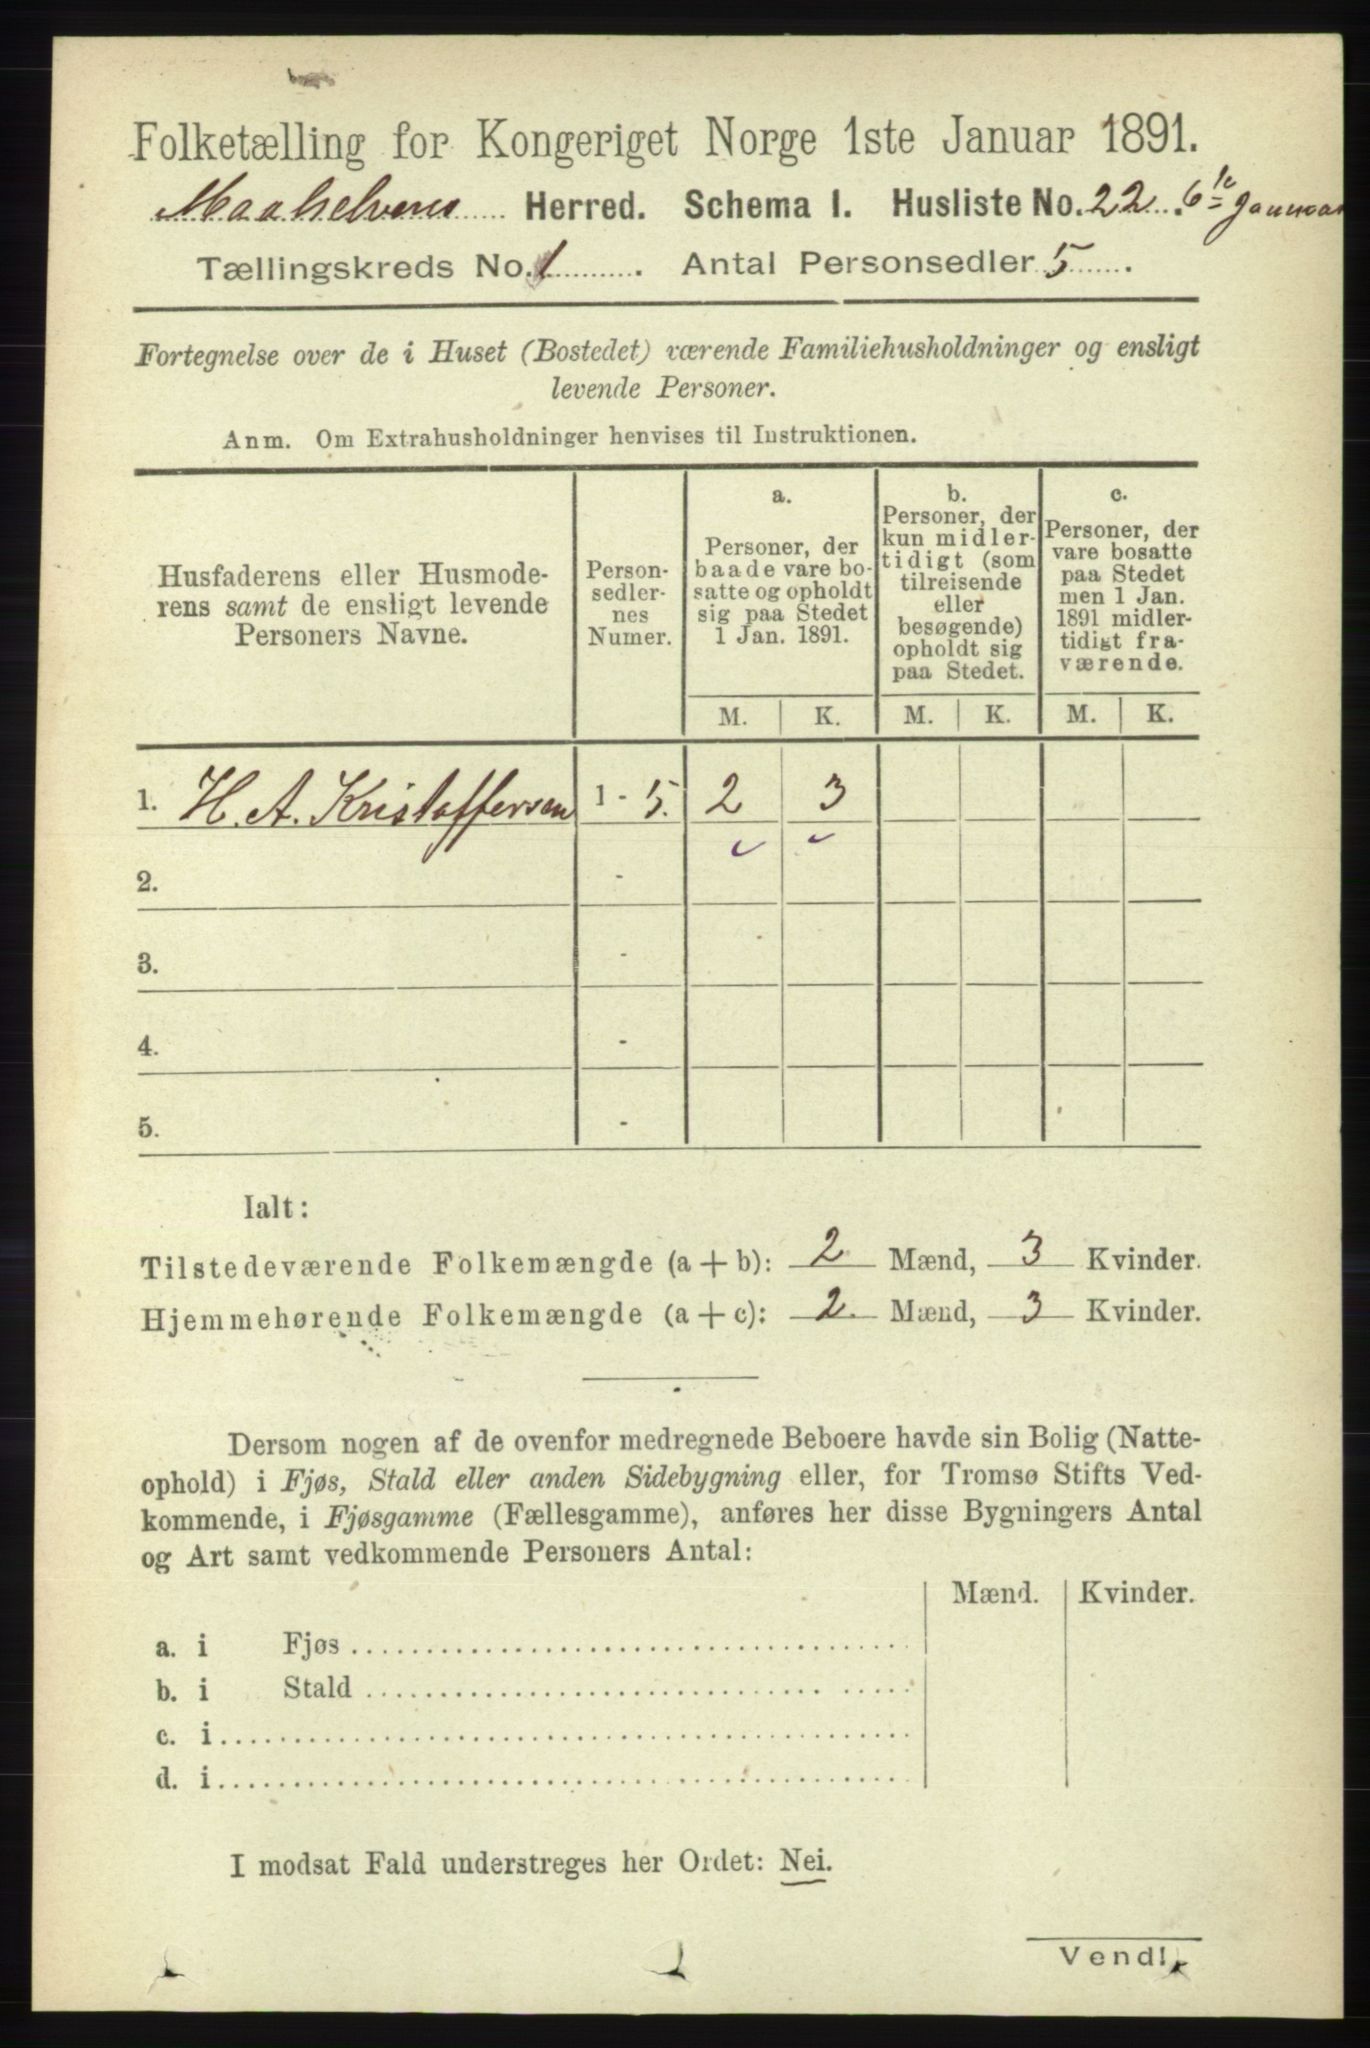 Folketælling for Kongeriget Norge 1ste Januar 1891.
Maalselvens Herred. Schema I. Husliste No. 22. 6te Januar
Tællingskreds No. 1. Antal Personsedler 5.
Fortegnelse over de i Huset (Bostedet) værende Familiehusholdninger og ensligt
levende Personer.
Anm. Om Extrahusholdninger henvises til Instruktionen.
Husfaderens eller Husmode-
rens samt de ensligt levende
Personers Navne.
Person-
sedler-
nes
Numer.
a.
Personer, der
baade vare bo-
satte og opholdt
sig paa Stedet
1 Jan. 1891.
b.
Personer, der
kun midler-
tidigt (som
tilreisende
eller
besøgende)
opholdt sig
paa Stedet.
c.
Personer, der
vare bosatte
paa Stedet
men 1 Jan.
1891 midler-
tidigt fra-
værende.
M. K. M. K. M. K.
1. H. A. Kristoffersen 1 - 5. 2 3
2. -
3. -
4. -
5. -
Ialt:
Tilstedeværende Folkemængde (a + b): 2 Mænd, 3 Kvinder.
Hjemmehørende Folkemængde (a + c): 2. Mænd, 3 Kvinder.
Dersom nogen af de ovenfor medregnede Beboere havde sin Bolig (Natte-
ophold) i Fjøs, Stald eller anden Sidebygning eller, for Tromsø Stifts Ved-
kommende, i Fjøsgamme (Fællesgamme), anføres her disse Bygningers Antal
og Art samt vedkommende Personers Antal:
Mænd. Kvinder.
a. i Fjøs
b. i Stald
c. i
d. i
I modsat Fald understreges her Ordet: Nei.
Vend!